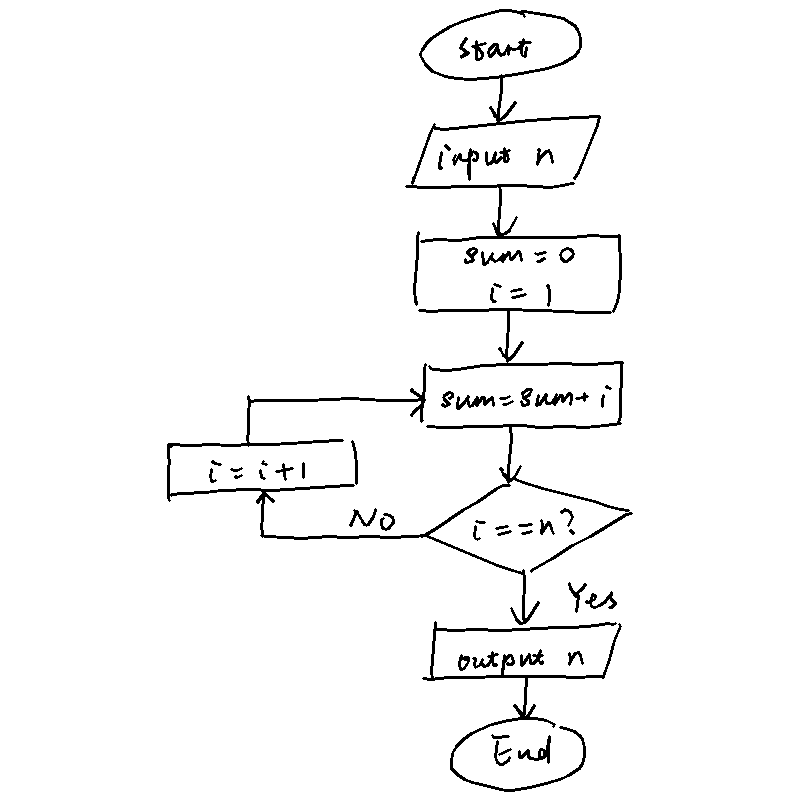 Start
input n
sum = 0
i = 1
sum = sum + i
i = i + 1
No
i == n?
Yes
output n
End